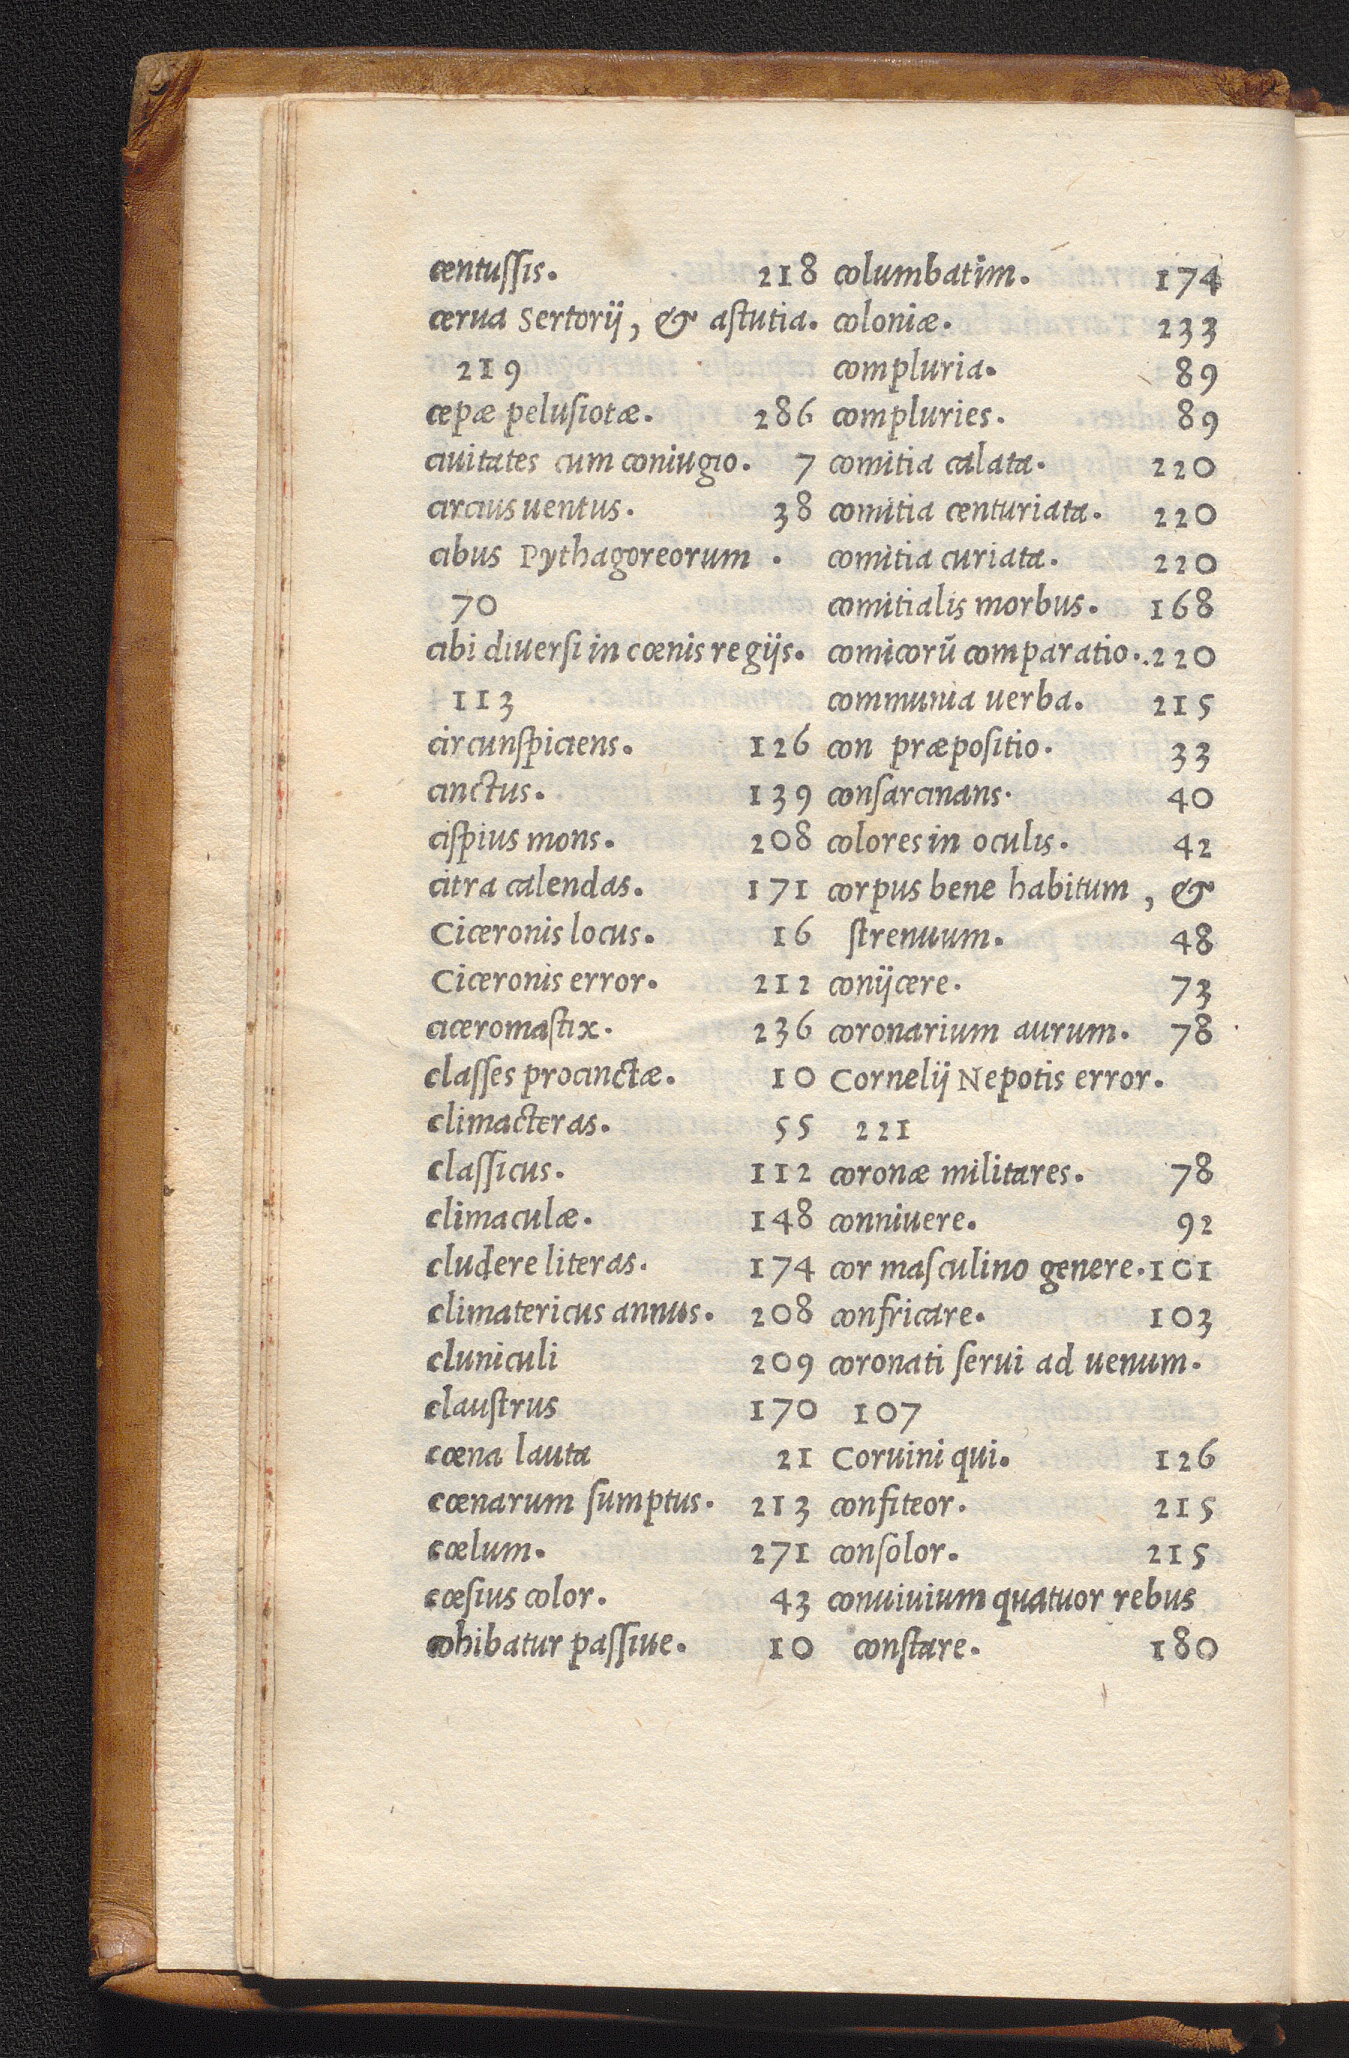 centuſſis. 218
cerua Sertorij, & aſtutia.
219
cepæ peluſiotæ. 286
ciuitates cum coniugio. 7
circius uentus. 38
cibus Pythagoreorum.
70
cibi diuerſi in cœnis regijs.
113
circunſpiciens. 126
cinctus. 139
ciſpius mons. 208
citra calendas. 171
Ciceronis locus. 16
Ciceronis error. 212
ciceromaſtix. 236
claſſes procinctæ. 10
climacteras. 55
claſſicus. 112
climaculæ. 148
cludere literas. 174
climatericus annus. 208
cluniculi 209
clauſtrus 170
cœna lauta 21
cœnarum ſumptus. 213
cœlum. 271
cœſius color. 43
cohibatur paſſiue. 10
columbatim. 174
coloniæ. 233
compluria. 89
compluries. 89
comitia calata. 220
comitia centuriata. 220
comitia curiata. 220
comitialis morbus. 168
comicorū comparatio. 220
communia uerba. 215
con præpoſitio. 33
conſarcinans. 40
colores in oculis. 42
corpus bene habitum, &
ſtrenuum. 48
conijcere. 73
coronarium aurum. 78
Cornelij Nepotis error.
221
coronæ militares. 78
conniuere. 92
cor maſculino genere. 101
confricare. 103
coronati ſerui ad uenum.
107
Coruini qui. 126
confiteor. 215
conſolor. 215
conuiuium quatuor rebus
conſtare. 180